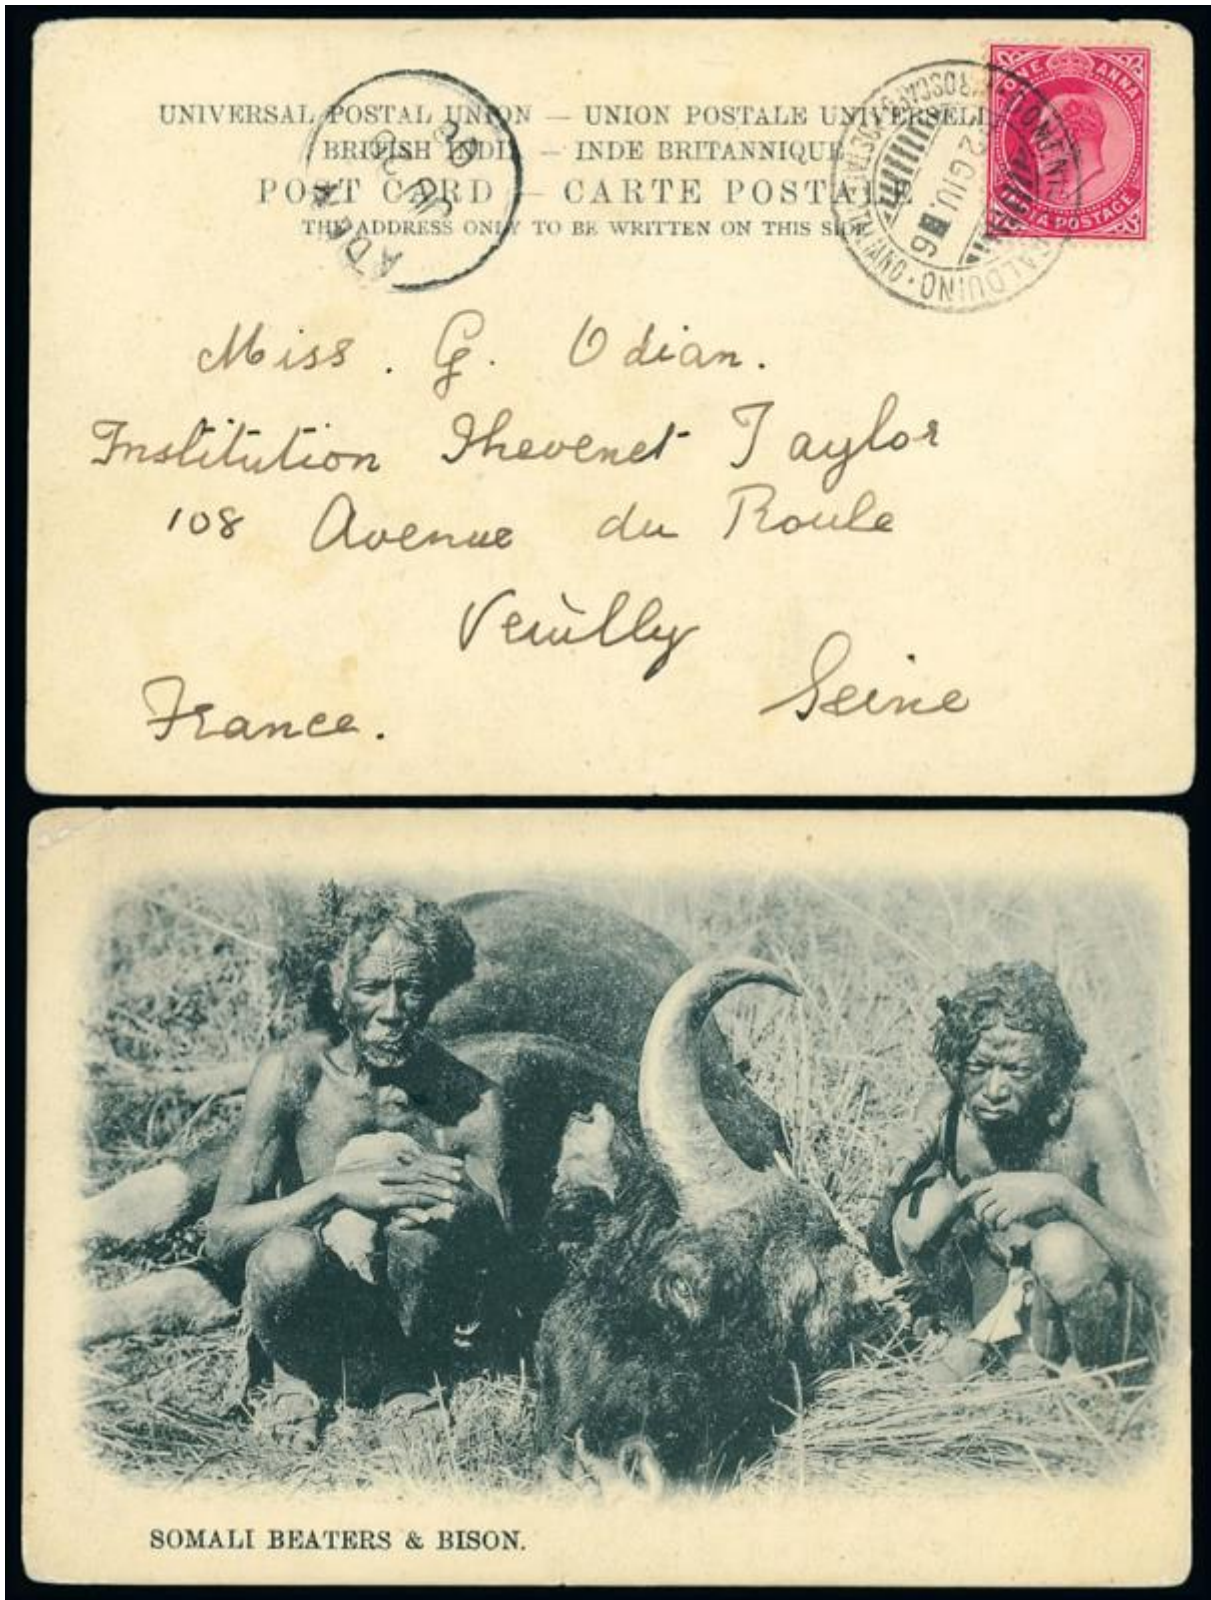 UNIVERSAL POSTAL UNION — UNION POSTALE UNIVERSELLE
BRITISH INDIA — INDE BRITANNIQUE
POST CARD — CARTE POSTALE
THE ADDRESS ONLY TO BE WRITTEN ON THIS SIDE
ONE ANNA
INDIA POSTAGE
ADEN
JU
06
DOMENICO BALDUINO
PIROSCAFO POSTALE ITALIANO
2 GIU. 6
Miss. G. Odian.
Institution Thevenet Taylor
108 Avenue du Roule
Neuilly
Seine
France.
SOMALI BEATERS & BISON.